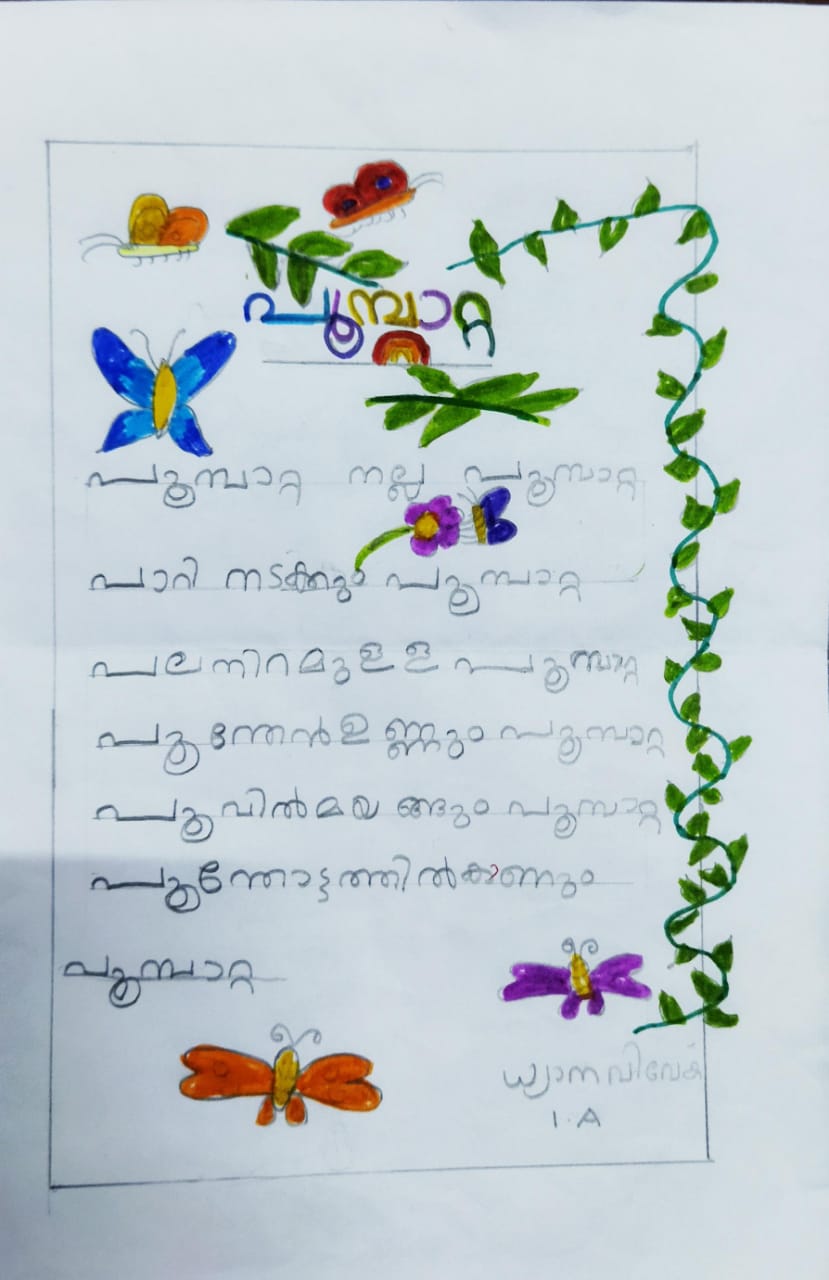 പൂമ്പാറ്റ
പൂമ്പാറ്റ നല്ല പൂമ്പാറ്റ
പാറി നടക്കും പൂമ്പാറ്റ
പല നിറമുളള പൂമ്പാറ്റ
പൂന്തേൻ ഉണ്ണും പൂമ്പാറ്റ
പൂവിൽ മയങ്ങും പൂമ്പാറ്റ
പൂന്തോട്ടത്തിൽ കാണും
പൂമ്പാറ്റ
ധ്യാന വിവേക്
1.A